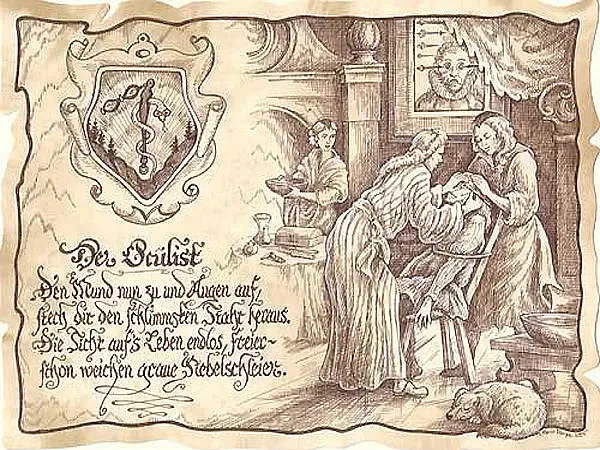 Der Oculist
Den Mund nun zu und Augen auf,
stech dir den schlimmsten Stahr heraus.
Die Sicht auf's Leben endlos, freier-
schon weichen graue Nebelschleier.